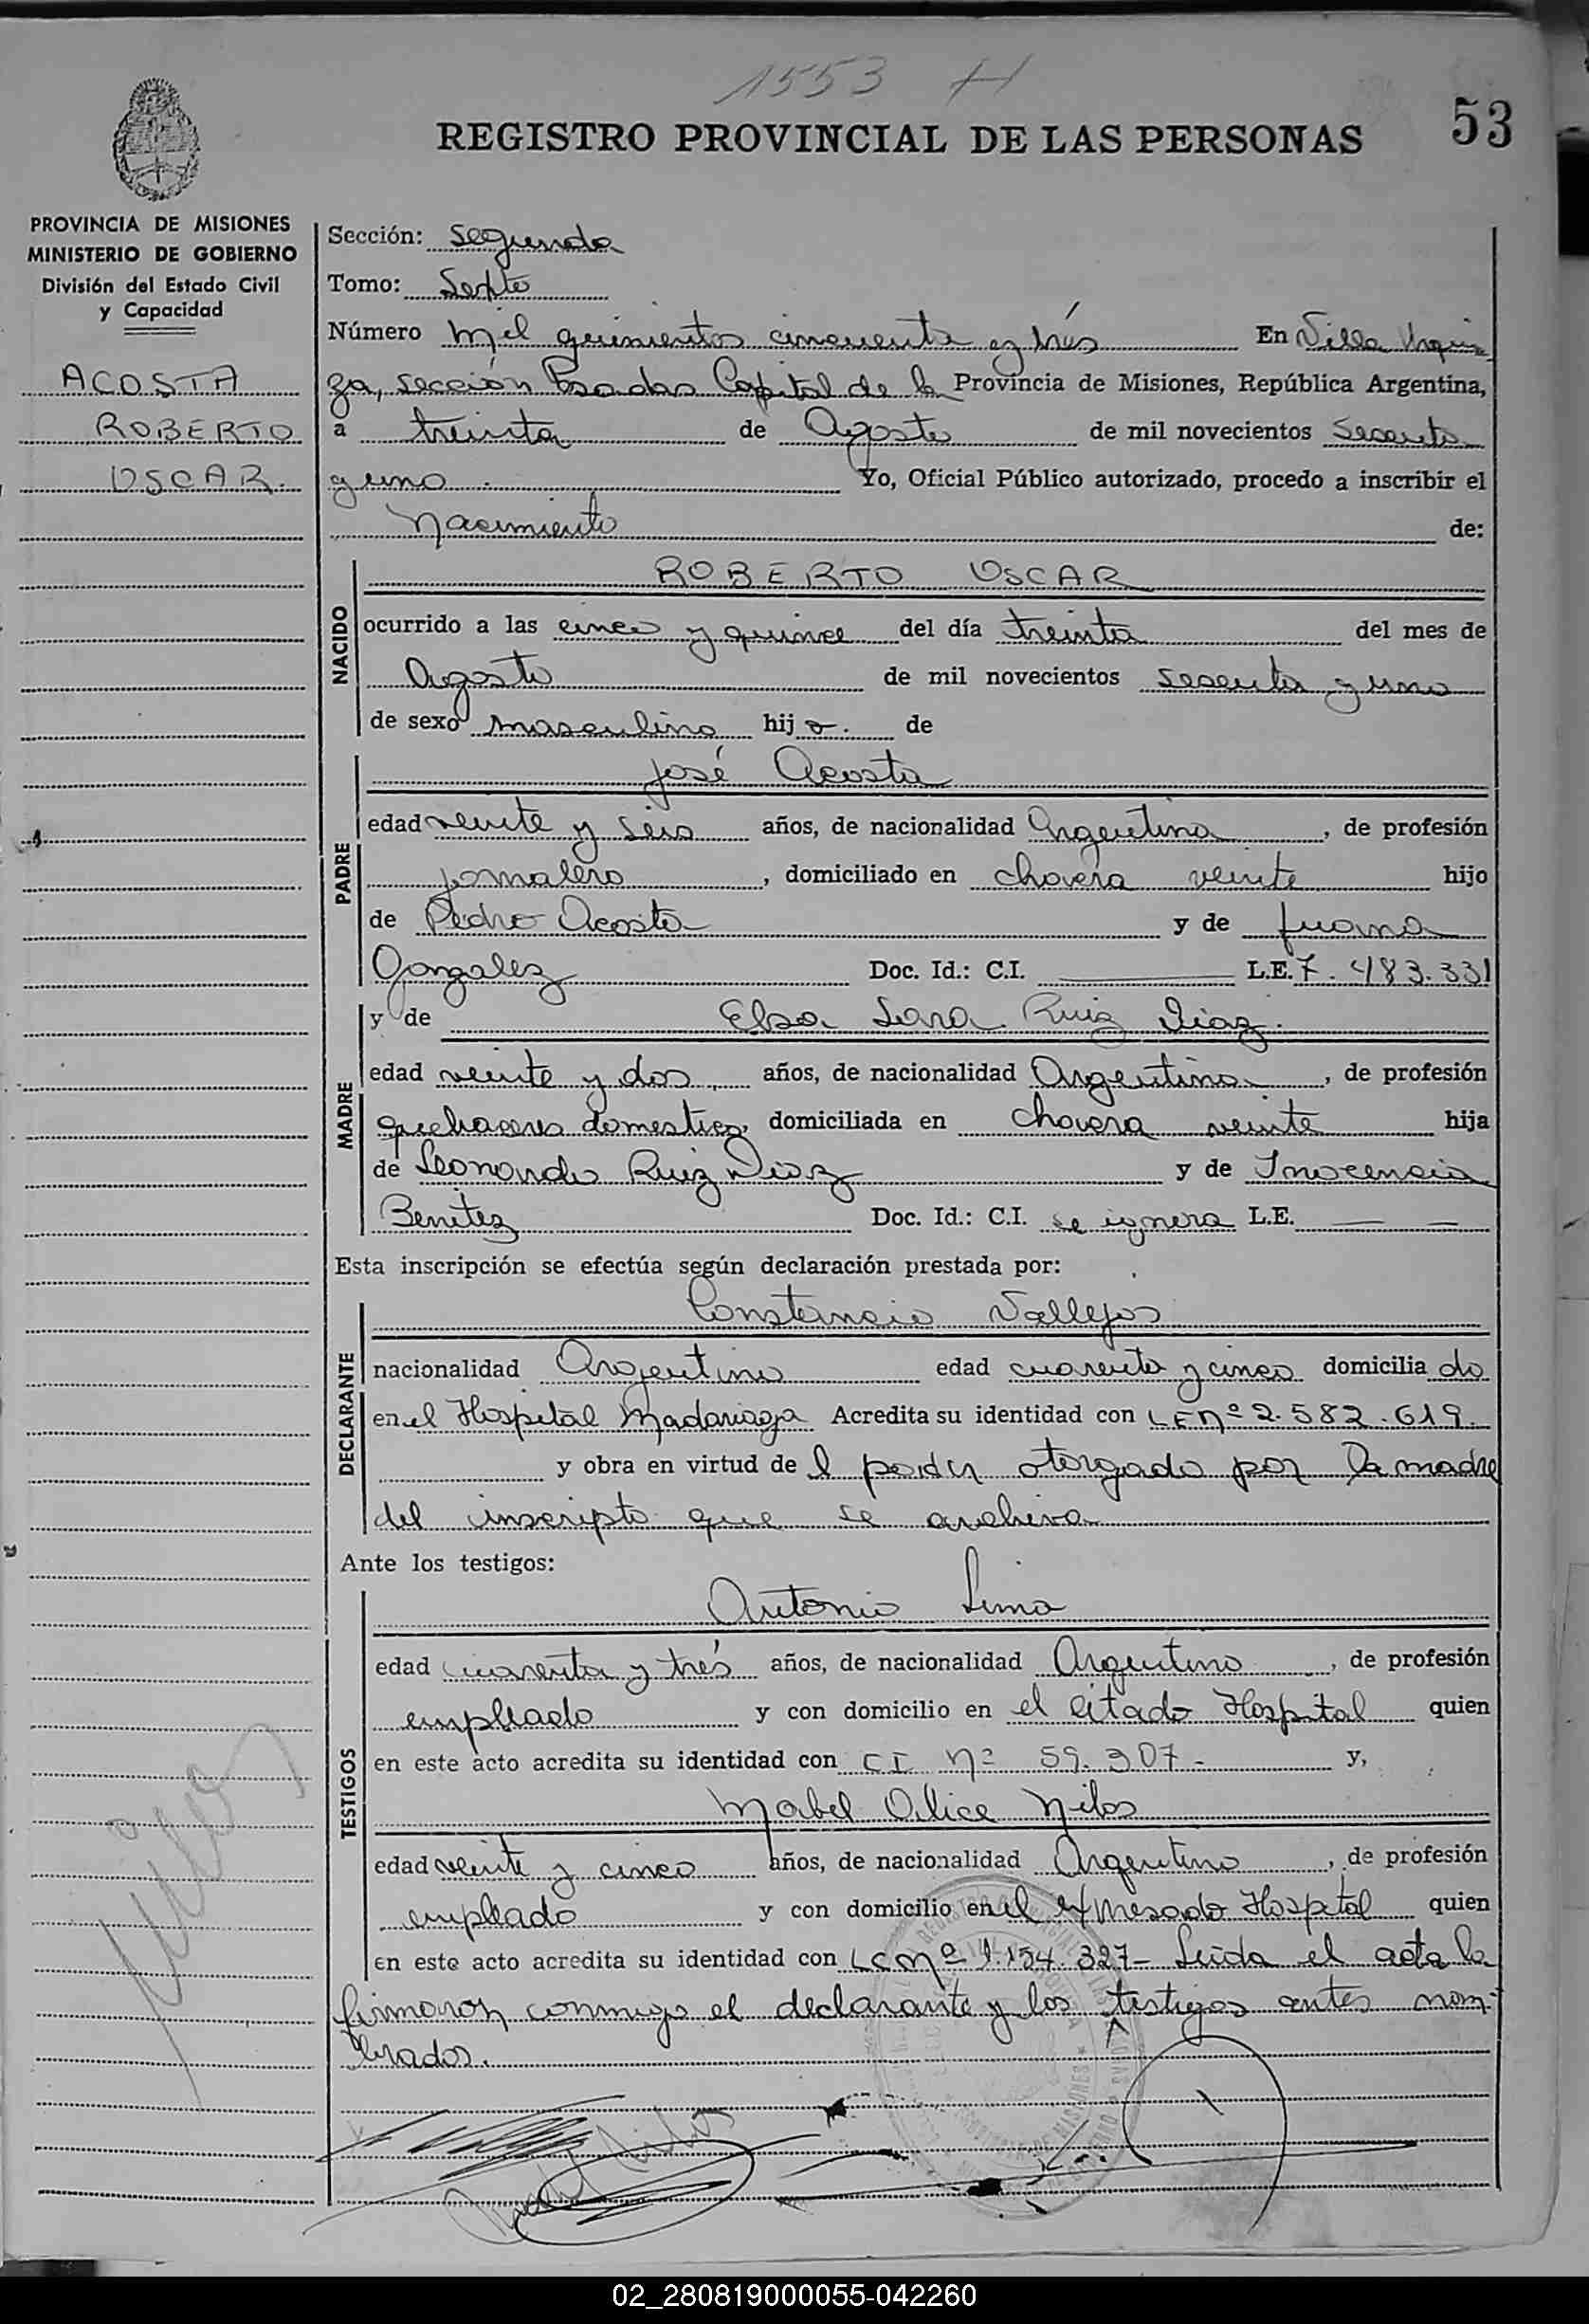 1553 H
REGISTRO PROVINCIAL DE LAS PERSONAS
53
PROVINCIA DE MISIONES
MINISTERIO DE GOBIERNO
División del Estado Civil
y Capacidad
ACOSTA
ROBERTO
OSCAR.
Sección: Segunda
Tomo: Sexto
Número mil quinientos cincuenta y trés En Villa Urqui
za, sección Posadas Capital de la Provincia de Misiones, República Argentina,
a treinta de Agosto de mil novecientos Sesenta
y uno. Yo, Oficial Público autorizado, procedo a inscribir el
Nacimiento de:
NACIDO
ROBERTO OSCAR
ocurrido a las cinco y quince del día treinta del mes de
Agosto de mil novecientos sesenta y uno
de sexo masculino hijo. de
PADRE
José Acosta
edad veinte y seis años, de nacionalidad Argentina, de profesión
jornalero, domiciliado en chovera veinte hijo
de Pedro Acosta y de Juana
Gonzalez Doc. Id.: C.I. L.E. 7.483.331
MADRE
y de Elsa Sara Ruiz Diaz.
edad veinte y dos años, de nacionalidad Argentina, de profesión
quehaceres domestico, domiciliada en chovera veinte hija
de Leonardo Ruiz Diaz y de Inocencia
Benitez Doc. Id.: C.I. se ignora L.E. — —
Esta inscripción se efectúa según declaración prestada por:
DECLARANTE
Constancio Vallejos
nacionalidad Argentino edad cuarenta y cinco domiciliado
en el Hospital Madariaga Acredita su identidad con LE Nº 2.582.619.
y obra en virtud del poder otorgado por la madre
del inscripto que se archiva
Ante los testigos:
TESTIGOS
Antonio Lima
edad cuarenta y trés años, de nacionalidad Argentino, de profesión
empleado y con domicilio en el citado Hospital quien
en este acto acredita su identidad con CI Nº 59.307- y,
Mabel Alice Nilos
edad veinte y cinco años, de nacionalidad Argentino, de profesión
empleado y con domicilio en el expresado Hospital quien
en este acto acredita su identidad con LC Nº 1.154.327- Leida el acta la
firmaron conmigo el declarante y los testigos antes nom-
brados.
02_280819000055-042260